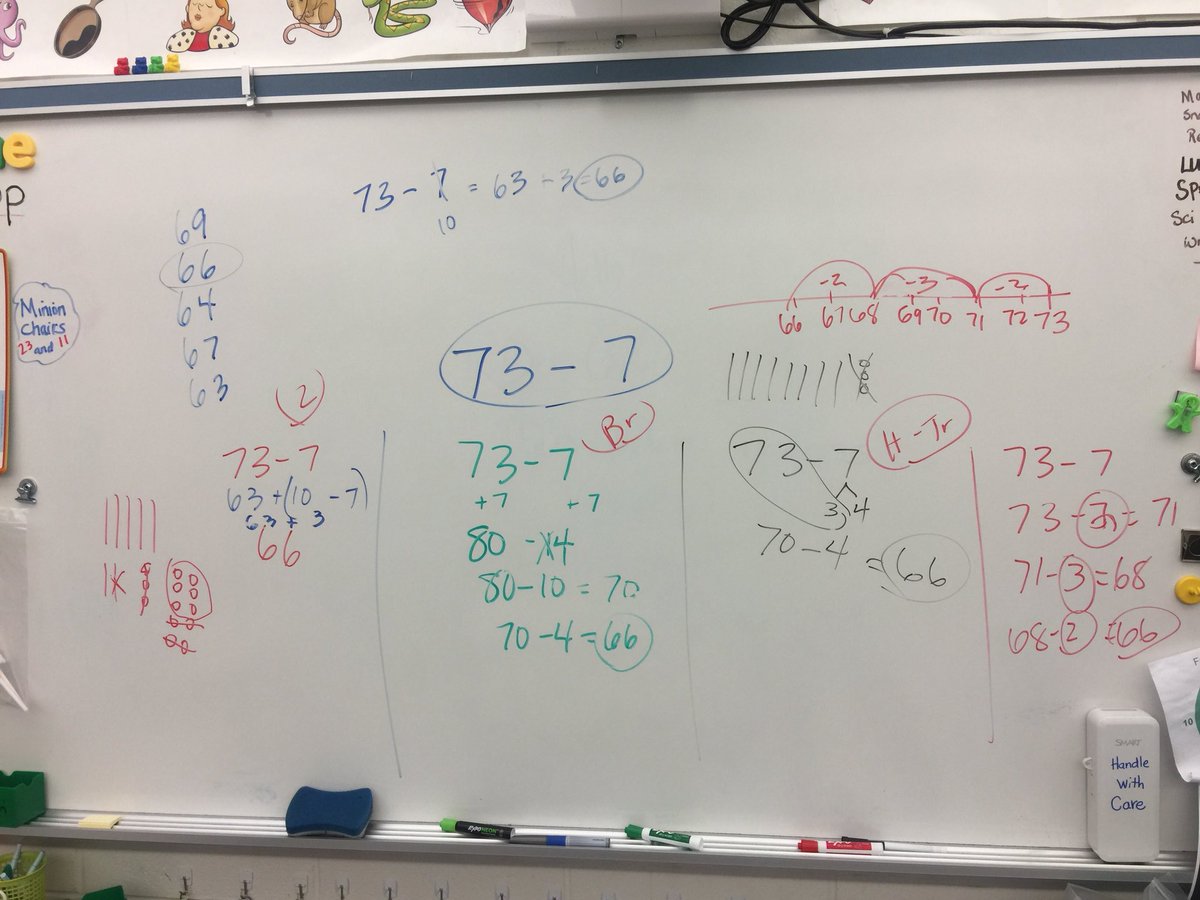 e
Minion
Chairs
23 and 11
73 - 7 = 63 + 3 = 66
10
69
66
64
67
63
73 - 7
-2 -3 -2
66 67 68 69 70 71 72 73
2
73 - 7
63 + (10 - 7)
63 + 3
66
Br
73 - 7
+7 +7
80 - 14
80 - 10 = 70
70 - 4 = 66
H-Tr
73 - 7
3 4
70 - 4 = 66
73 - 7
73 - 2 = 71
71 - 3 = 68
68 - 2 = 66
Lu
Sp
Sci
SMART
Handle
With
Care
10